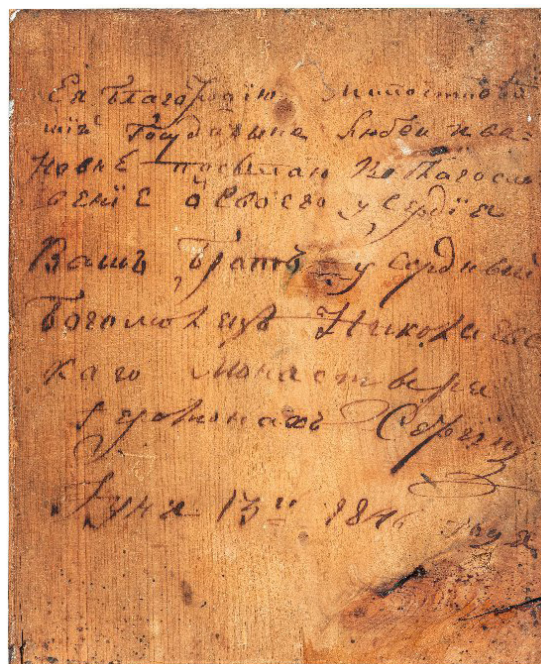 Ея Благородїю милостивой
шїй Государыне Любви Ива-
новне посылаю Благосло
венїе от своего усердїя
Вашъ Братъ усердный
Богомолецъ Николаевс
каго монастыря
Їеромонахъ Сергїй
Їуня 13го 1846 года